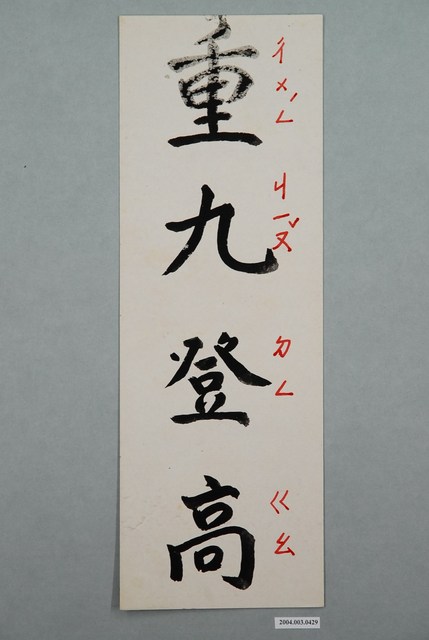 重九登高
ㄔㄨㄥˊ ㄐㄧㄡˇ ㄉㄥ ㄍㄠ
2004.003.0429